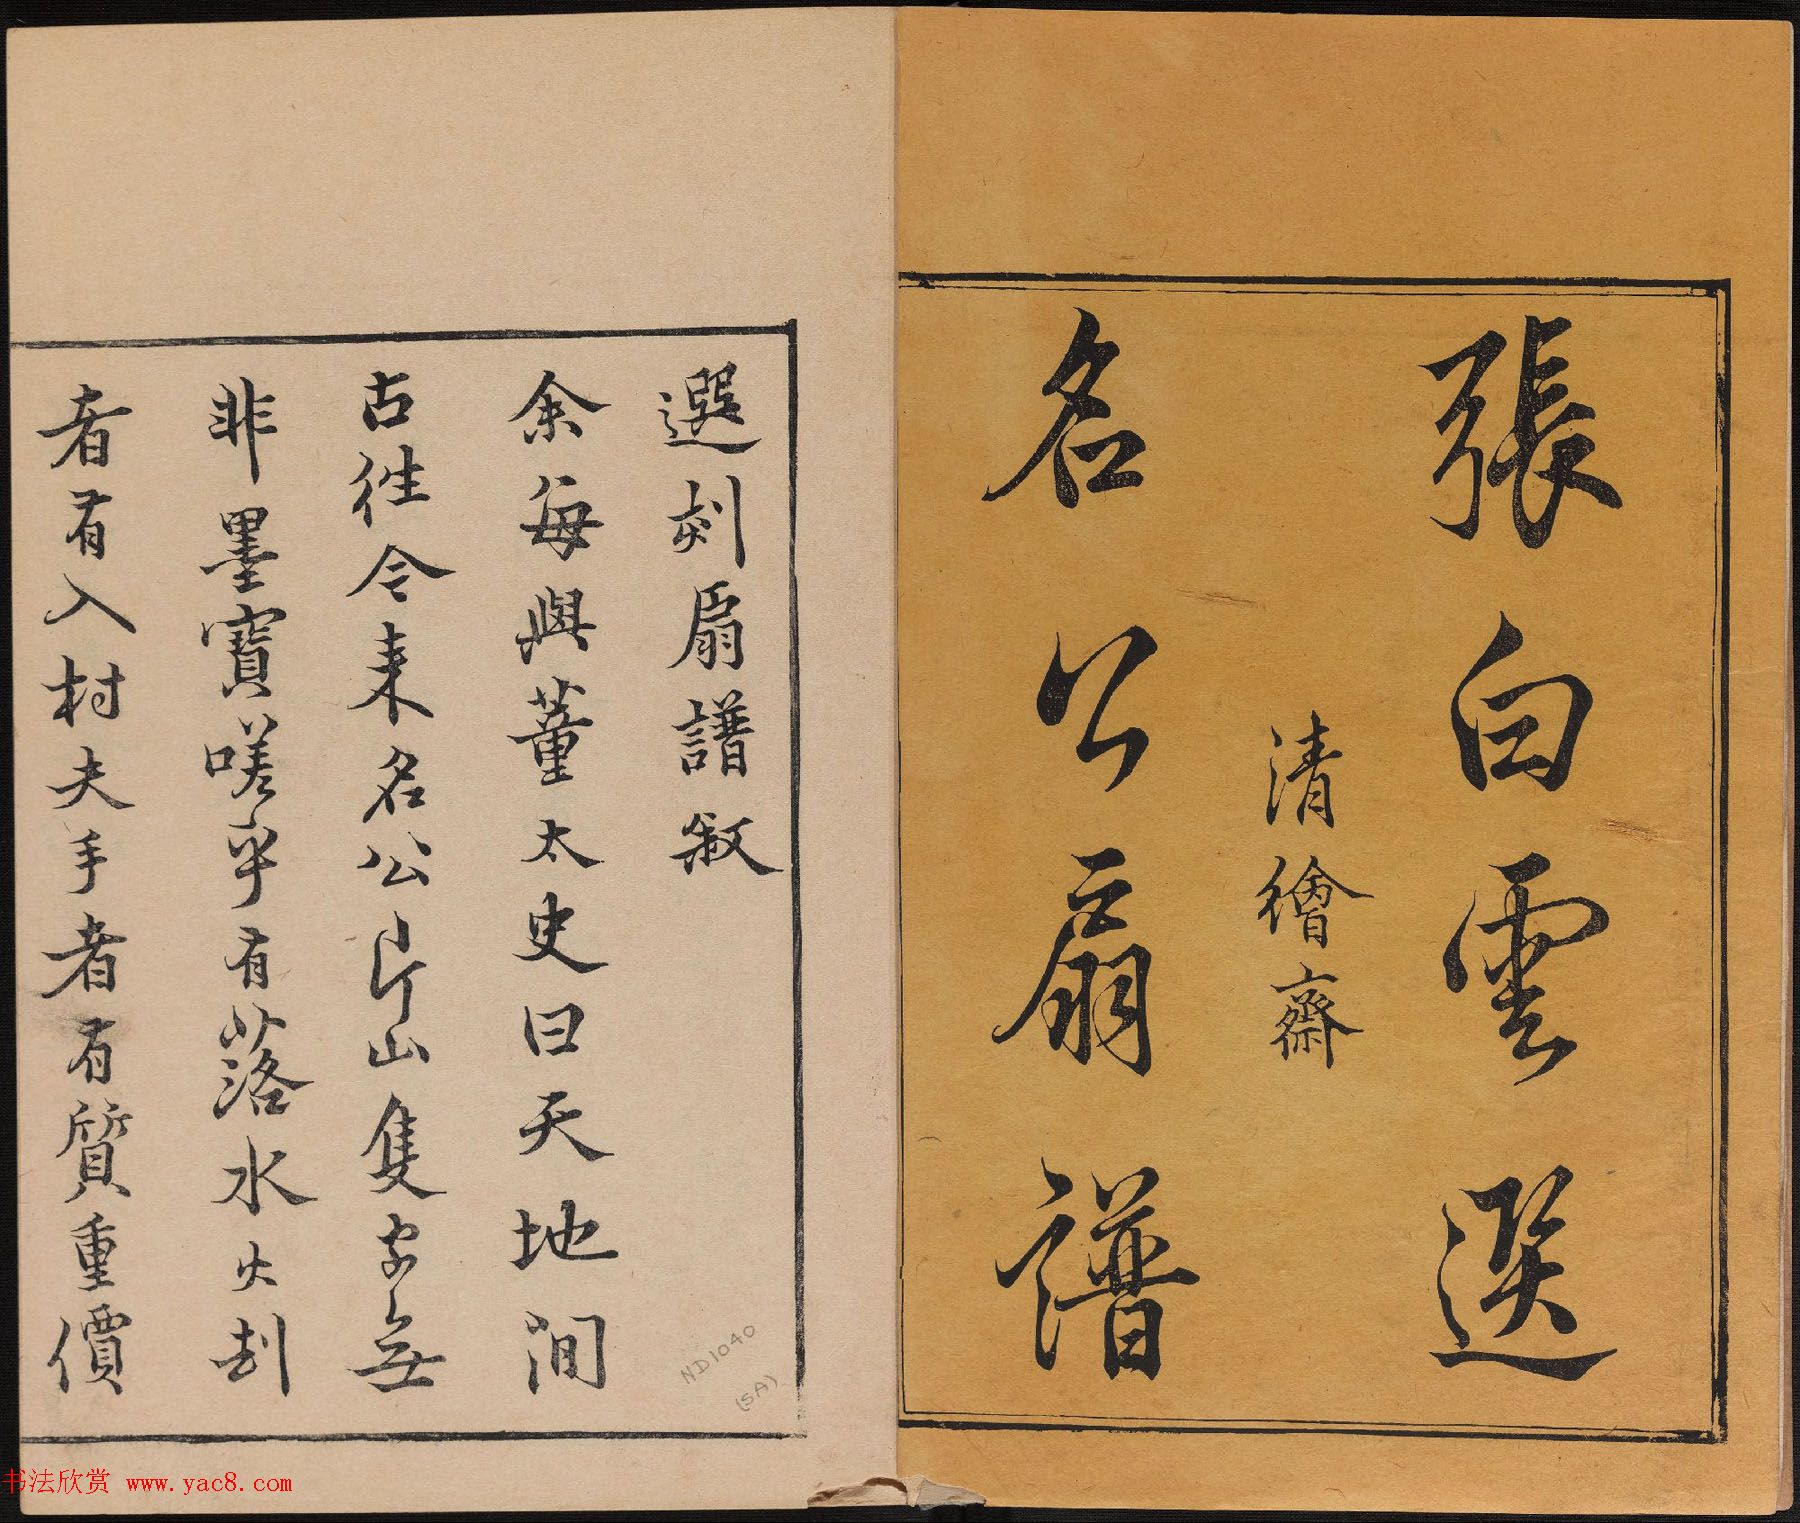 張白雲選
清繪齋
名公扇譜
選刻扇譜敘
余每與董太史曰天地間
古往今來名公片山隻字無
非墨寶嗟乎有落水火劫
者有入村夫手者有質重價
ND1040
(SA)
书法欣赏 www.yac8.com